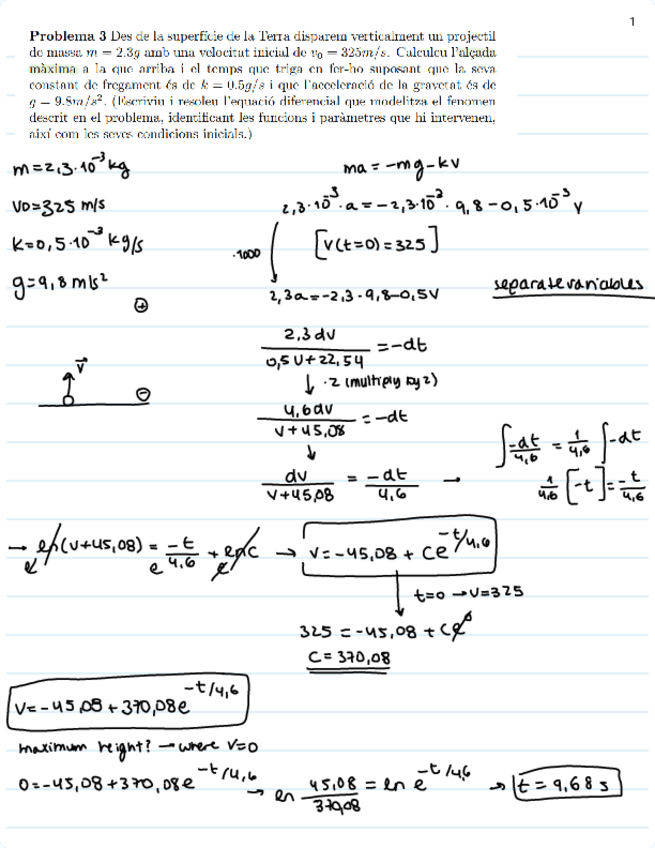 1
Problema 3 Des de la superfície de la Terra disparem verticalment un projectil
de massa m = 2.3g amb una velocitat inicial de v₀ = 325m/s. Calculeu l'alçada
màxima a la que arriba i el temps que triga en fer-ho suposant que la seva
constant de fregament és de k = 0.5g/s i que l'acceleració de la gravetat és de
g = 9.8m/s². (Escriviu i resoleu l'equació diferencial que modelitza el fenomen
descrit en el problema, identificant les funcions i paràmetres que hi intervenen,
així com les seves condicions inicials.)
m=2,3·10⁻³kg
ma=-mg-kv
v0=325 m/s
2,3·10⁻³·a=-2,3·10⁻³·9,8-0,5·10⁻³ v
k=0,5·10⁻³kg/s
·1000
[v(t=0)=325]
g=9,8m/s²
2,3a=-2,3·9,8-0,5v
separate variables
⊕
2,3dv / 0,5v+22,54 = -dt
v⃗
↓ ·2 (multiply by 2)
⊖
4,6dv / v+45,08 = -dt
↓
dv / v+45,08 = -dt / 4,6 →
∫ -dt/4,6 = 1/4,6 ∫-dt
1/4,6 [-t]=-t/4,6
→ eln(v+45,08) = e -t/4,6 + elnc → v=-45,08+ce^-t/4,6
t=0 →v=325
325=-45,08+ce⁰
c=370,08
v=-45,08+370,08e^-t/4,6
maximum height? →where v=0
0=-45,08+370,08e^-t/4,6 → ln 45,08/370,08 = ln e^-t/4,6 → t=9,68s